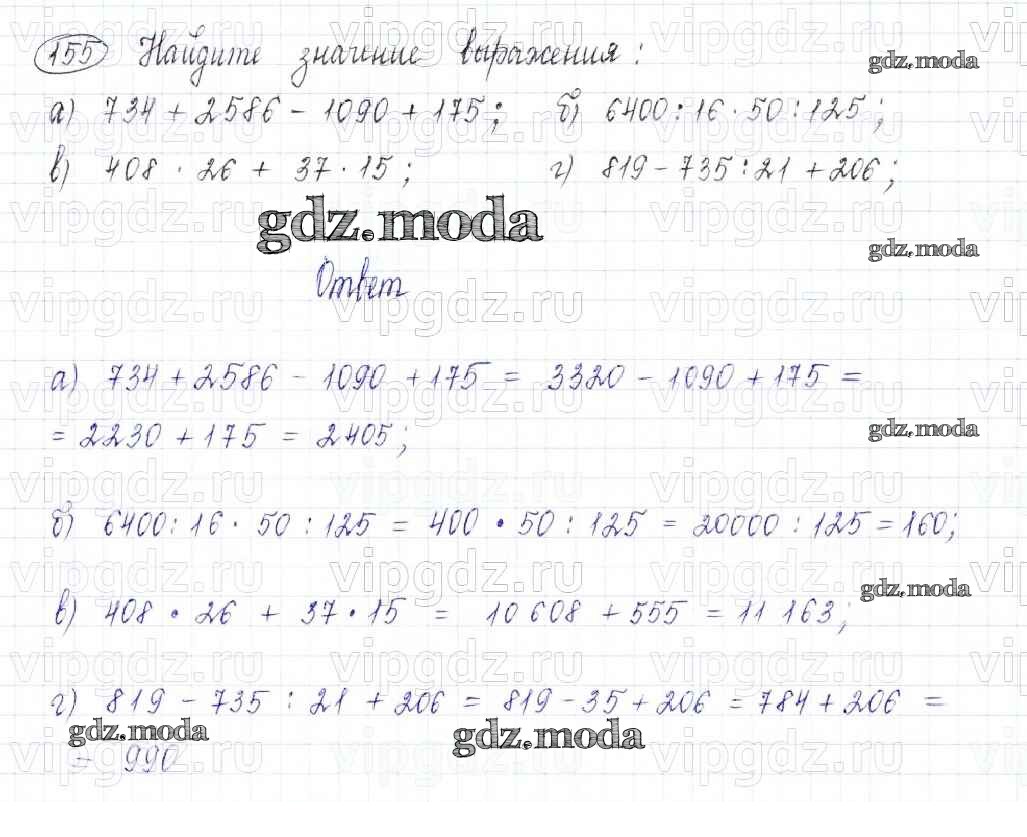 155 Найдите значение выражения:
gdz.moda
а) 734 + 2586 - 1090 + 175; б) 6400 : 16 · 50 : 125;
в) 408 · 26 + 37 · 15; г) 819 - 735 : 21 + 206;
gdz.moda
gdz.moda
Ответ
а) 734 + 2586 - 1090 + 175 = 3320 - 1090 + 175 =
= 2230 + 175 = 2405;
gdz.moda
б) 6400 : 16 · 50 : 125 = 400 · 50 : 125 = 20000 : 125 = 160;
gdz.moda
в) 408 · 26 + 37 · 15 = 10 608 + 555 = 11 163;
г) 819 - 735 : 21 + 206 = 819 - 35 + 206 = 784 + 206 =
gdz.moda gdz.moda
= 990
vipgdz.ru